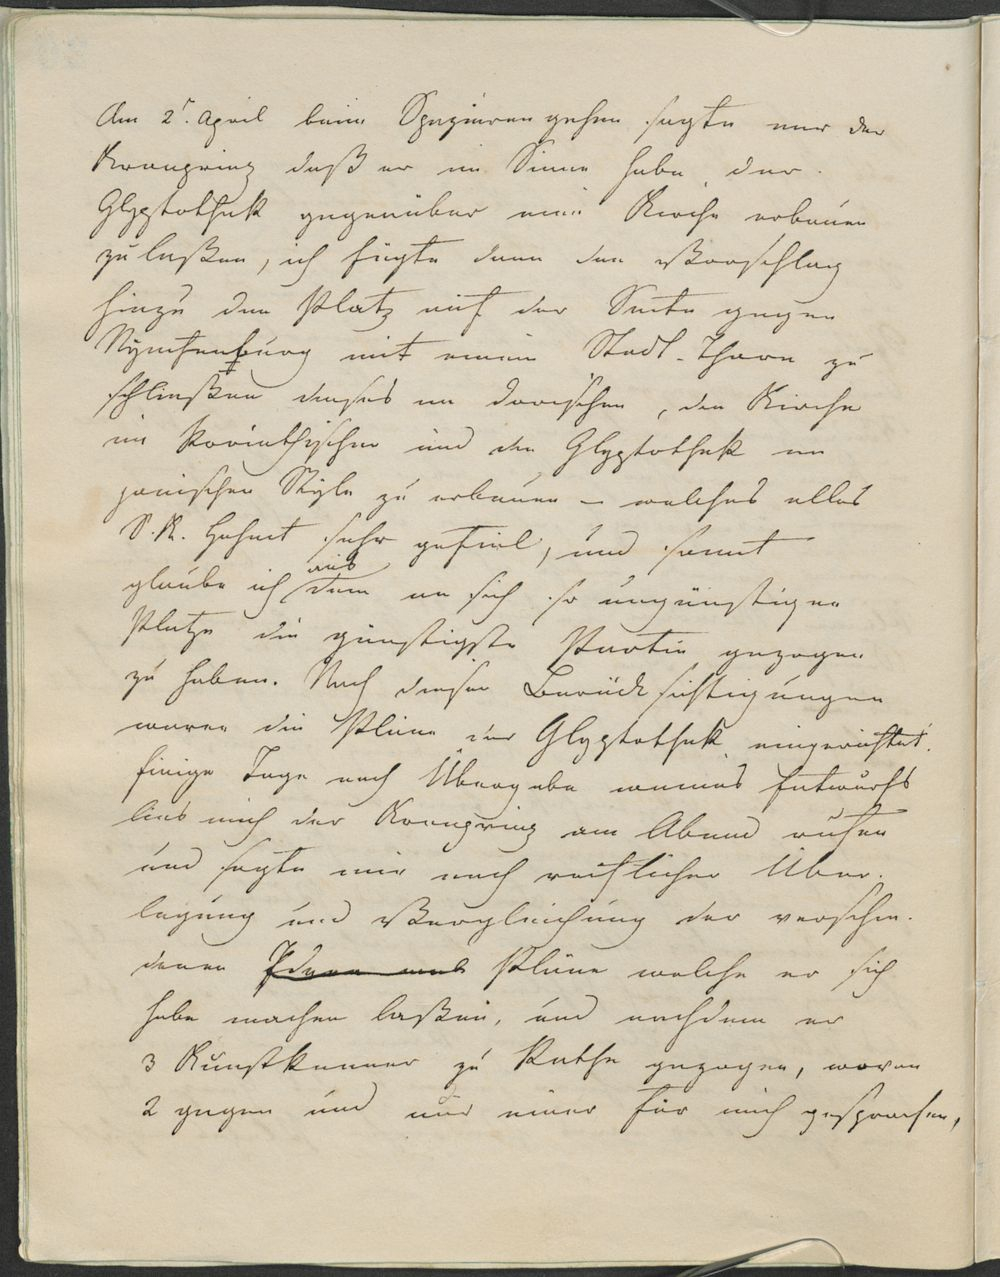 Am 2t. April beim Spazierengehen sagte mir der
Kronprinz daß er im Sinne habe der
Glyptothek gegenüber eine Kirche erbauen
zu laßen, ich fügte dann den Vorschlag
hinzu den Platz auf der Seite gegen
Nymfenburg mit einem Stadt-Thore zu
schließen dieses im dorischen, die Kirche
im korinthischen und die Glyptothek im
jonischen Style zu erbauen – welches alles
S. K. Hoheit sehr gefiel, und somit
glaube ich aus dem an sich so ungünstigen
Platze die günstigste Partie gezogen
zu haben. Nach diesen Berücksichtigungen
waren die Pläne der Glyptothek eingerichtet.
Einige Tage nach Übergabe meines Entwurfs
lies mich der Kronprinz am Abend rufen
und sagte mir nach reiflicher Über-
legung und Vergleichung der verschie-
denen Pläne welche er sich
habe machen laßen, und nachdem er
3 Kunstkenner zu Rathe gezogen, wovon
2 gegen und nur einer für mich gesprochen,